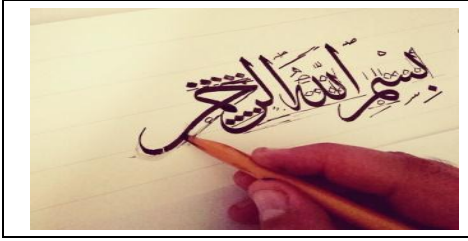 بِسْمِ اللّٰهِ الرحمن